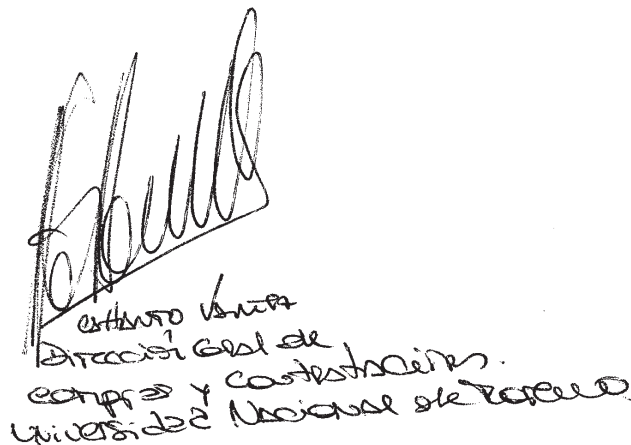 Dirección Gral de
compras y Contrataciones.
Universidad Nacional de Moreno